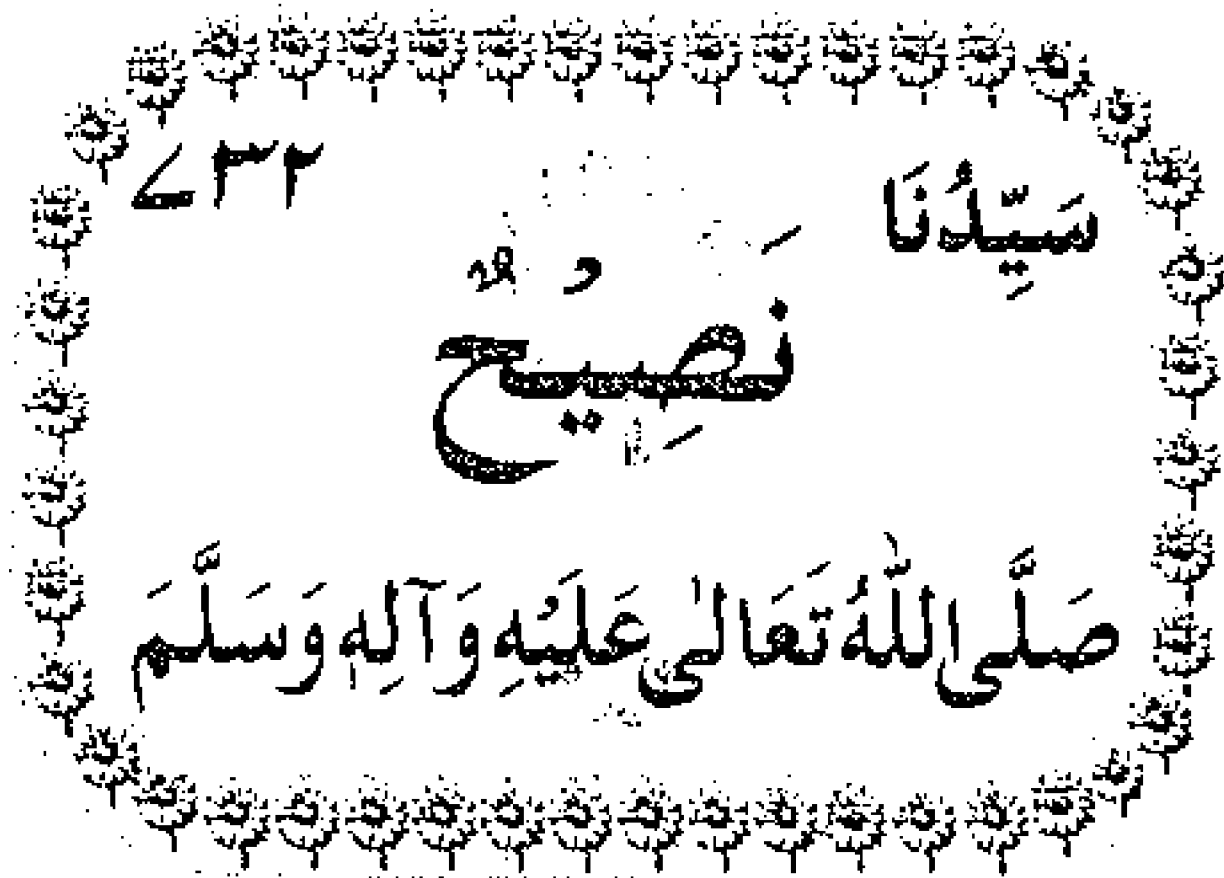 سَيِّدُنَا ۷۳۲
نَصِيْحٌ
صَلَّى اللّٰهُ تَعَالىٰ عَلَيْهِ وَآلِهٖ وَسَلَّمَ